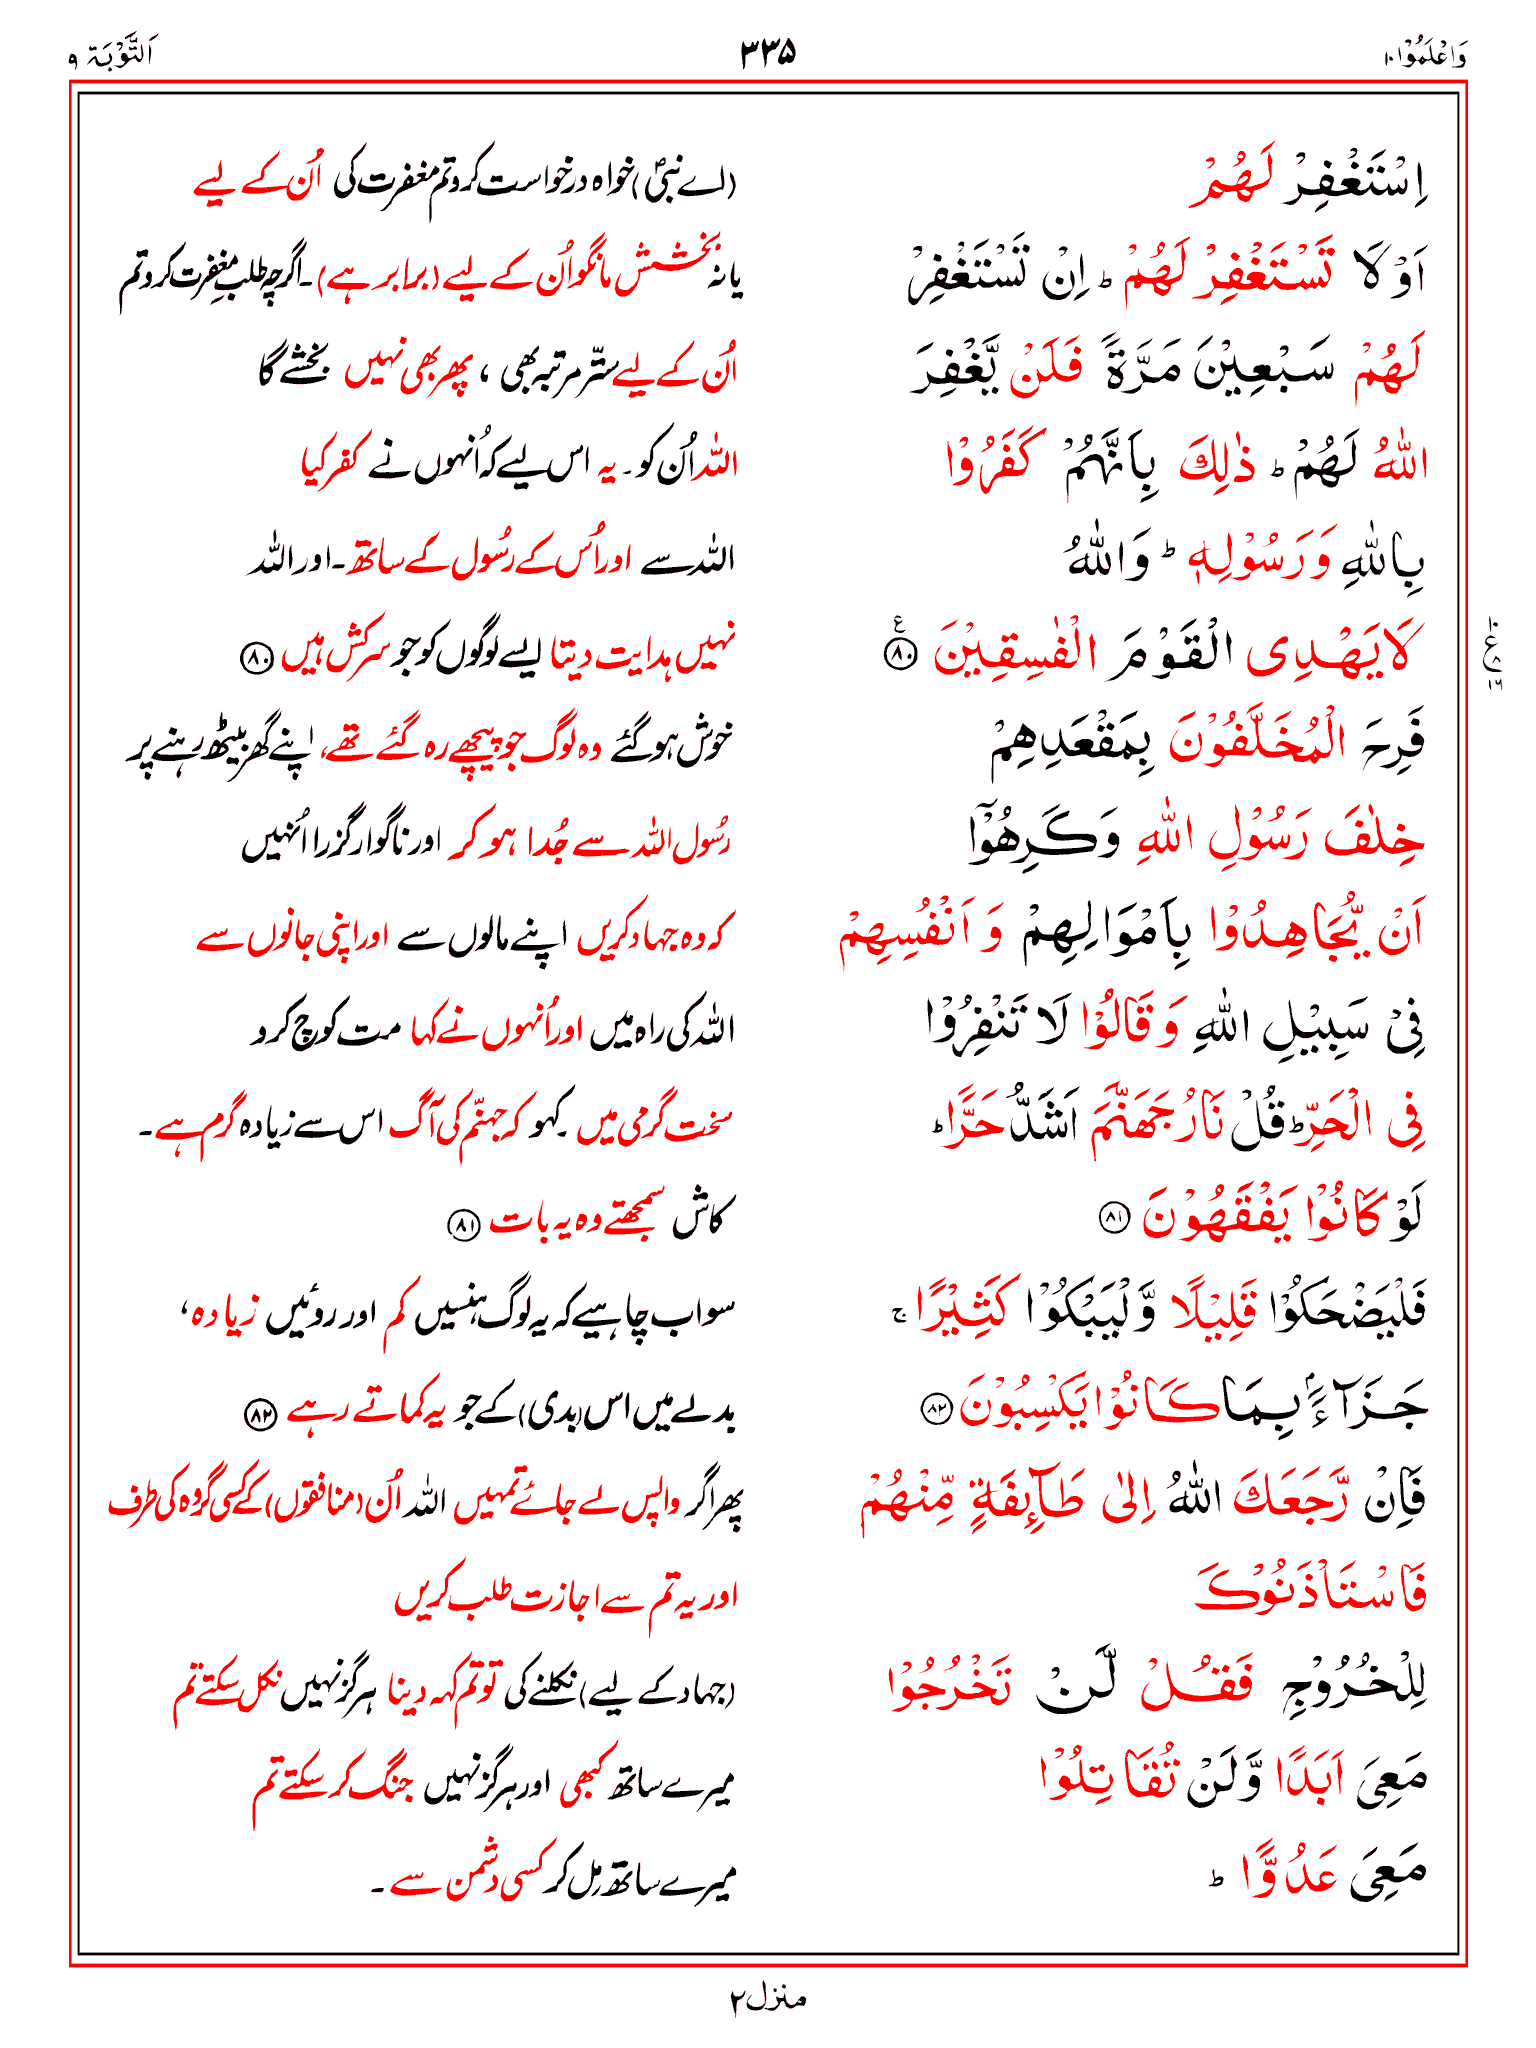 وَاعْلَمُوْا۱۰ ۳۳۵ اَلتَّوْبَۃ ۹
اِسْتَغْفِرْ لَهُمْ (اے نبیؐ) خواہ درخواست کرو تم مغفرت کی اُن کے لیے
اَوْ لَا تَسْتَغْفِرْ لَهُمْ ؕ اِنْ تَسْتَغْفِرْ یا نہ بخشش مانگو اُن کے لیے (برابر ہے)۔ اگرچہ طلبِ مغفرت کرو تم
لَهُمْ سَبْعِيْنَ مَرَّةً فَلَنْ يَّغْفِرَ اُن کے لیے ستّر مرتبہ بھی ، پھر بھی نہیں بخشے گا
اللّٰهُ لَهُمْ ؕ ذٰلِكَ بِاَنَّهُمْ كَفَرُوْا اللہ اُن کو۔ یہ اس لیے کہ اُنہوں نے کفر کیا
بِاللّٰهِ وَرَسُوْلِهٖ ؕ وَاللّٰهُ اللہ سے اور اُس کے رسُول کے ساتھ۔ اور اللہ
لَا يَهْدِى الْقَوْمَ الْفٰسِقِيْنَ ۸۰ ع نہیں ہدایت دیتا ایسے لوگوں کو جو سرکش ہیں ۸۰
۱۰ ع ۸ ۱۶
فَرِحَ الْمُخَلَّفُوْنَ بِمَقْعَدِهِمْ خوش ہو گئے وہ لوگ جو پیچھے رہ گئے تھے، اپنے گھر بیٹھ رہنے پر
خِلٰفَ رَسُوْلِ اللّٰهِ وَكَرِهُوْٓا رسُول اللہ سے جُدا ہو کر اور ناگوار گزرا اُنہیں
اَنْ يُّجَاهِدُوْا بِاَمْوَالِهِمْ وَ اَنْفُسِهِمْ کہ وہ جہاد کریں اپنے مالوں سے اور اپنی جانوں سے
فِىْ سَبِيْلِ اللّٰهِ وَ قَالُوْا لَا تَنْفِرُوْا اللہ کی راہ میں اور اُنہوں نے کہا مت کوچ کرو
فِى الْحَرِّ ؕ قُلْ نَارُ جَهَنَّمَ اَشَدُّ حَرًّا ؕ سخت گرمی میں۔ کہو کہ جہنّم کی آگ اس سے زیادہ گرم ہے۔
لَوْ كَانُوْا يَفْقَهُوْنَ ۸۱ کاش سمجھتے وہ یہ بات ۸۱
فَلْيَضْحَكُوْا قَلِيْلًا وَّلْيَبْكُوْا كَثِيْرًا ۚ سو اب چاہیے کہ یہ لوگ ہنسیں کم اور روئیں زیادہ،
جَزَآءًۢ بِمَا كَانُوْا يَكْسِبُوْنَ ۸۲ بدلے میں اس (بدی) کے جو یہ کماتے رہے ۸۲
فَاِنْ رَّجَعَكَ اللّٰهُ اِلٰى طَآئِفَةٍ مِّنْهُمْ پھر اگر واپس لے جائے تمہیں اللہ اُن (منافقوں) کے کسی گروہ کی طرف
فَاسْتَاْذَنُوْكَ اور یہ تم سے اجازت طلب کریں
لِلْخُرُوْجِ فَقُلْ لَّنْ تَخْرُجُوْا (جہاد کے لیے) نکلنے کی تو تم کہہ دینا ہرگز نہیں نکل سکتے تم
مَعِىَ اَبَدًا وَّلَنْ تُقَاتِلُوْا میرے ساتھ کبھی اور ہرگز نہیں جنگ کر سکتے تم
مَعِىَ عَدُوًّا ؕ میرے ساتھ مِل کر کسی دُشمن سے۔
منزل۲